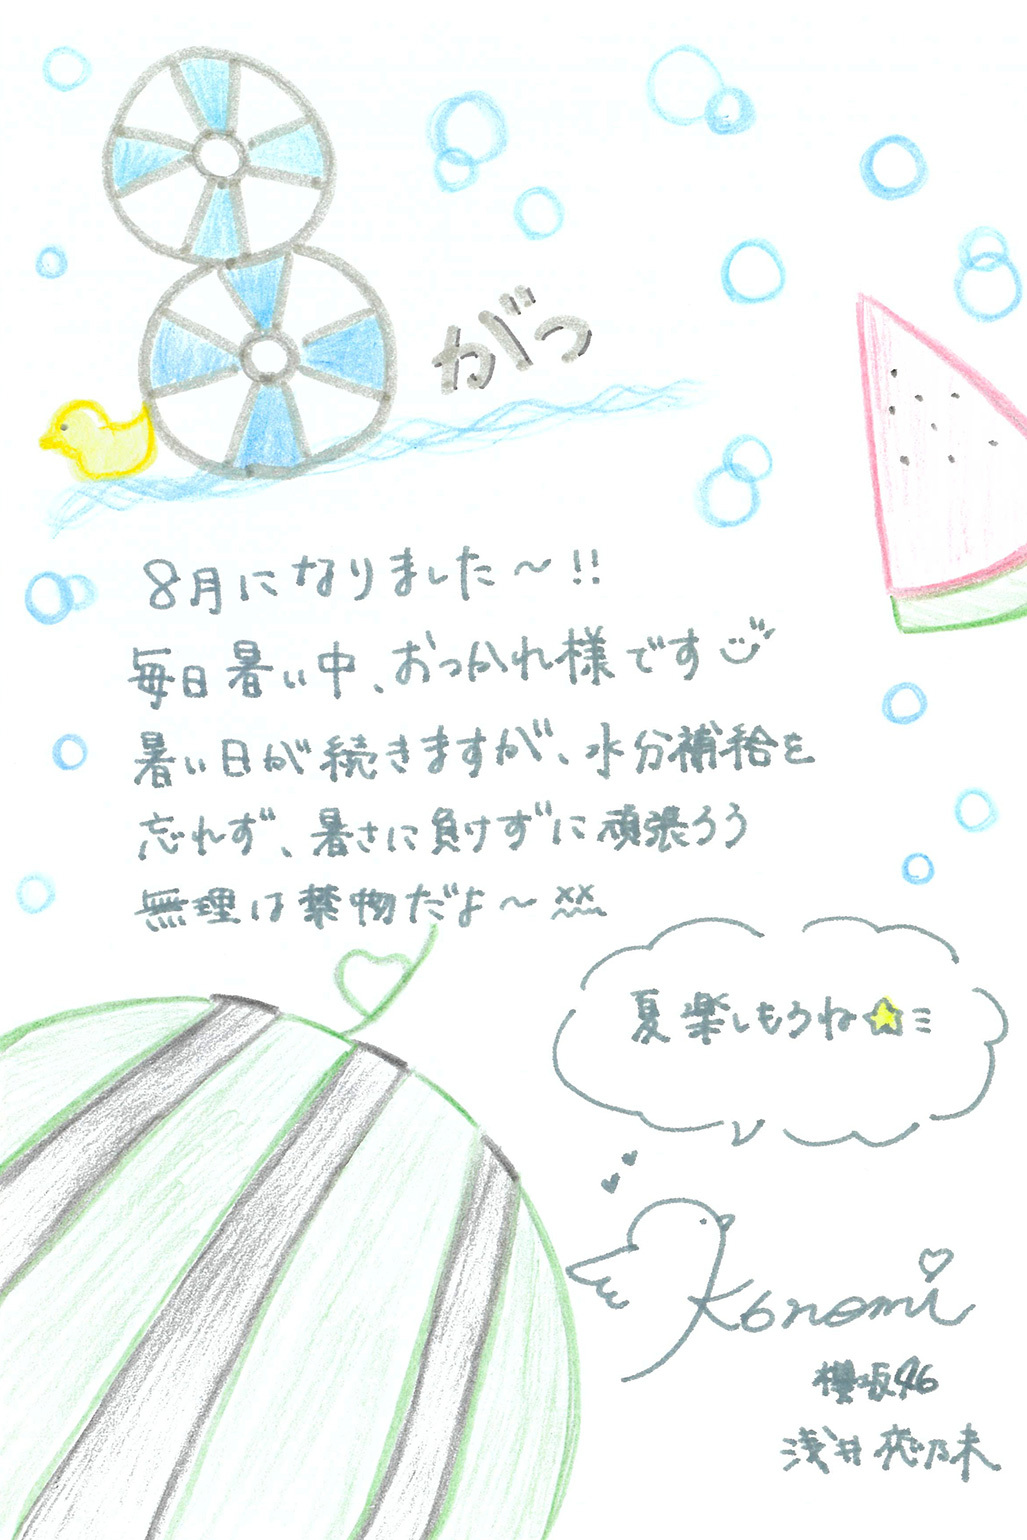 がつ
8月になりました〜!!
毎日暑い中、おつかれ様です
暑い日が続きますが、水分補給を
忘れず、暑さに負けずに頑張ろう
無理は禁物だよ〜
夏楽しもうね
Konomi
櫻坂46
浅井恋乃未